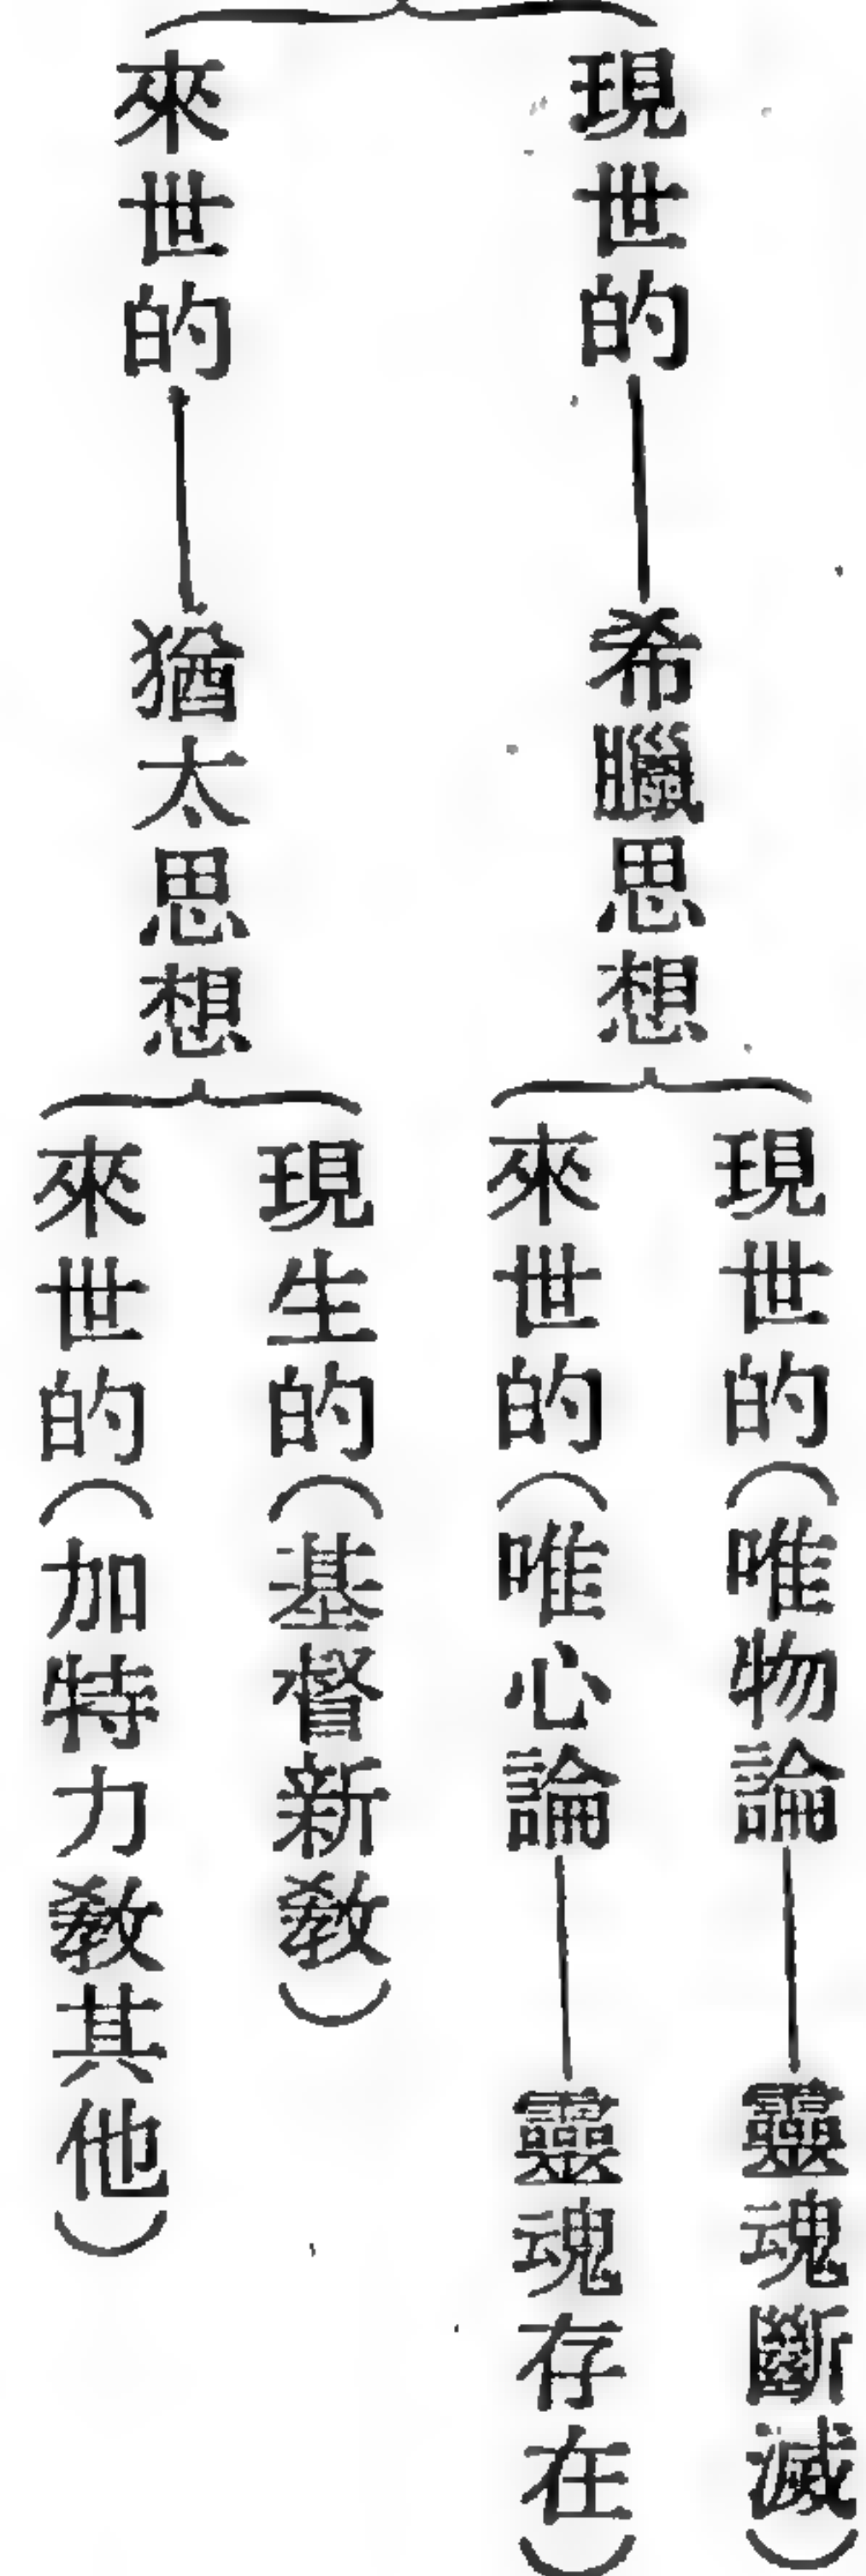 現世的——希臘思想
現世的（唯物論——靈魂斷滅）
來世的（唯心論——靈魂存在）
來世的——猶太思想
現生的（基督新敎）
來世的（加特力敎其他）